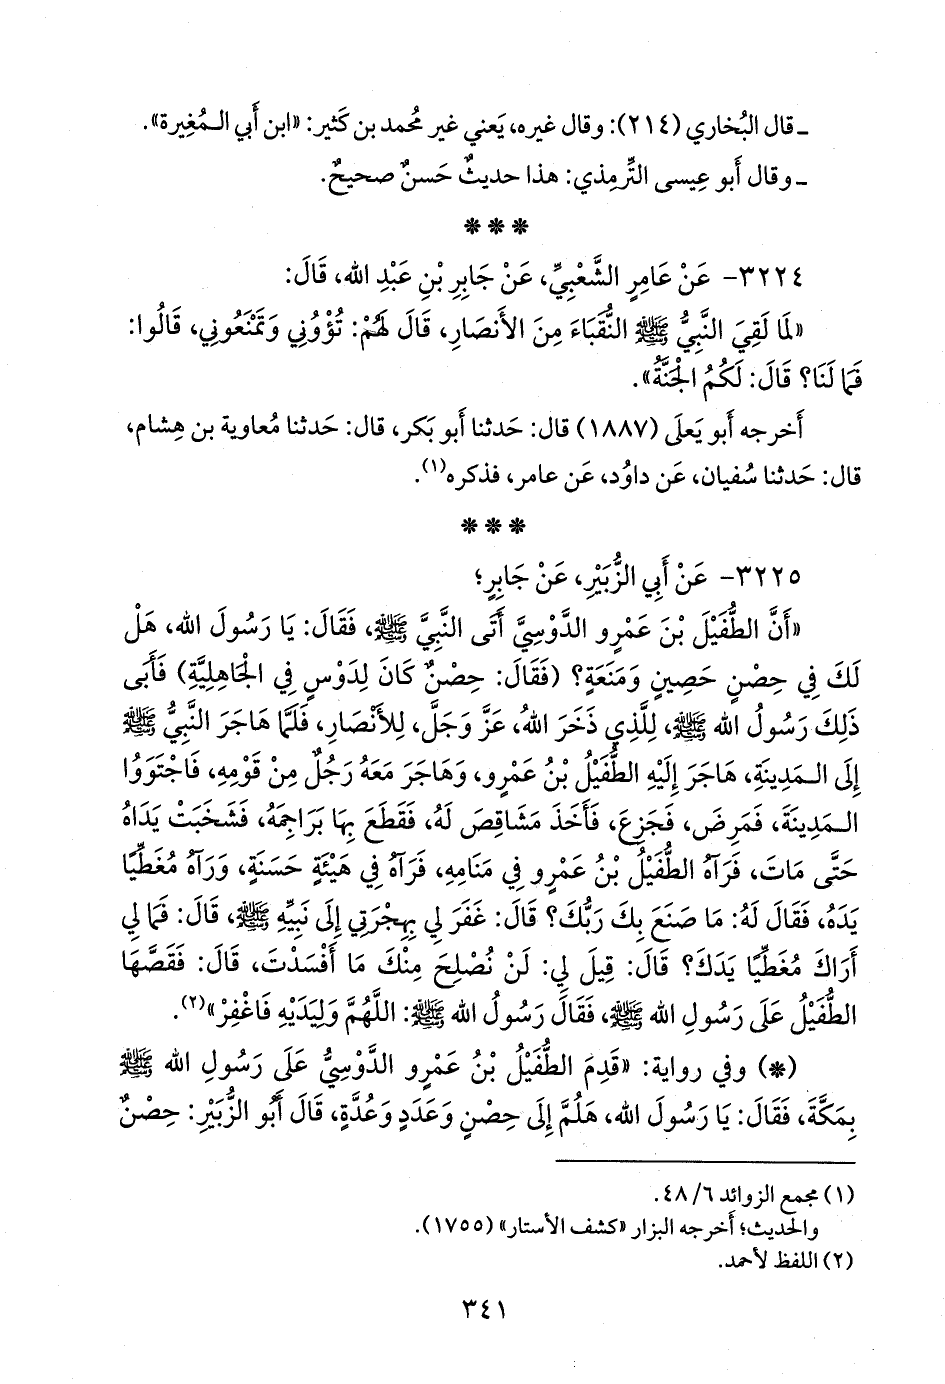 ـ قال البُخاري (٢١٤): وقال غيره، يَعني غير مُحمد بن كَثير: «ابن أَبي الـمُغِيرة».
ـ وقال أَبو عِيسى التِّرمِذي: هذا حديثٌ حَسنٌ صحيحٌ.
* * *
٣٢٢٤- عَنْ عَامِرٍ الشَّعْبِيِّ، عَنْ جَابِرِ بْنِ عَبْدِ الله، قَالَ:
«لَمَا لَقِيَ النَّبِيُّ ﷺ النُّقَبَاءَ مِنَ الأَنصَارِ، قَالَ لَهُمْ: تُؤْوُنِي وَتَمْنَعُونِي، قَالُوا:
فَمَا لَنَا؟ قَالَ: لَكُمُ الْجَنَّةُ».
أَخرجه أَبو يَعلَى (١٨٨٧) قال: حَدثنا أَبو بَكر، قال: حَدثنا مُعاوية بن هِشام،
قال: حَدثنا سُفيان، عَن داوُد، عَن عامر، فذكره(١).
* * *
٣٢٢٥- عَنْ أَبِي الزُّبَيْرِ، عَنْ جَابِرٍ؛
«أَنَّ الطُّفَيْلَ بْنَ عَمْرٍو الدَّوْسِيَّ أَتَى النَّبِيَّ ﷺ، فَقَالَ: يَا رَسُولَ الله، هَلْ
لَكَ فِي حِصْنٍ حَصِينٍ وَمَنَعَةٍ؟ (فَقَالَ: حِصْنٌ كَانَ لِدَوْسٍ فِي الْجَاهِلِيَّةِ) فَأَبَى
ذَلِكَ رَسُولُ الله ﷺ، لِلَّذِي ذَخَرَ اللهُ، عَزَّ وَجَلَّ، لِلأَنْصَارِ، فَلَمَّا هَاجَرَ النَّبِيُّ ﷺ
إِلَى الـمَدِينَةِ، هَاجَرَ إِلَيْهِ الطُّفَيْلُ بْنُ عَمْرٍو، وَهَاجَرَ مَعَهُ رَجُلٌ مِنْ قَوْمِهِ، فَاجْتَوَوُا
الـمَدِينَةَ، فَمَرِضَ، فَجَزِعَ، فَأَخَذَ مَشَاقِصَ لَهُ، فَقَطَعَ بِهَا بَرَاجِمَهُ، فَشَخَبَتْ يَدَاهُ
حَتَّى مَاتَ، فَرَآهُ الطُّفَيْلُ بْنُ عَمْرٍو فِي مَنَامِهِ، فَرَآهُ فِي هَيْئَةٍ حَسَنَةٍ، وَرَآهُ مُغَطِّيًا
يَدَهُ، فَقَالَ لَهُ: مَا صَنَعَ بِكَ رَبُّكَ؟ قَالَ: غَفَرَ لِي بِهِجْرَتِي إِلَى نَبِيِّهِ ﷺ، قَالَ: فَمَا لِي
أَرَاكَ مُغَطِّيًا يَدَكَ؟ قَالَ: قِيلَ لِي: لَنْ نُصْلِحَ مِنْكَ مَا أَفْسَدْتَ، قَالَ: فَقَصَّهَا
الطُّفَيْلُ عَلَى رَسُولِ الله ﷺ، فَقَالَ رَسُولُ الله ﷺ: اللَّهُمَّ وَلِيَدَيْهِ فَاغْفِرْ»(٢).
(*) وفي رواية: «قَدِمَ الطُّفَيْلُ بْنُ عَمْرٍو الدَّوْسِيُّ عَلَى رَسُولِ الله ﷺ
بِمَكَّةَ، فَقَالَ: يَا رَسُولَ الله، هَلُمَّ إِلَى حِصْنٍ وَعَدَدٍ وَعُدَّةٍ، قَالَ أَبُو الزُّبَيْرِ: حِصْنٌ
(١) مجمع الزوائد ٦/ ٤٨.
والحديث؛ أَخرجه البزار «كشف الأستار» (١٧٥٥).
(٢) اللفظ لأحمد.
٣٤١